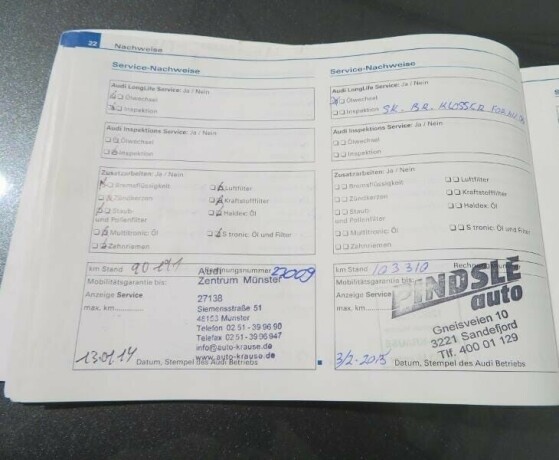 22 Nachweise
Service-Nachweise
Audi LongLife Service: Ja / Nein
Ölwechsel
Inspektion
Audi Inspektions Service: Ja / Nein
Ölwechsel
Inspektion
Zusatzarbeiten: Ja / Nein
Bremsflüssigkeit
Luftfilter
Zündkerzen
Kraftstofffilter
Staub
und Pollenfilter
Haldex: Öl
Multitronic: Öl
S tronic: Öl und Filter
Zahnriemen
km Stand
Mobilitätsgarantie bis:
Anzeige Service
max. km:
Audi
Zentrum Münster
27138
Siemensstraße 51
48153 Münster
Telefon 02 51 - 39 96 90
Telefax 02 51 - 39 96 947
info@auto-krause.de
www.auto-krause.de
13.01.14
Datum, Stempel des Audi Betriebs
Service-Nachweise
Audi LongLife Service: Ja / Nein
Ölwechsel
Inspektion SK. BR.
Audi Inspektions Service: Ja / Nein
Ölwechsel
Inspektion
Zusatzarbeiten: Ja / Nein
Bremsflüssigkeit
Luftfilter
Zündkerzen
Kraftstofffilter
Staub
und Pollenfilter
Haldex: Öl
Multitronic: Öl
S tronic: Öl und Filter
Zahnriemen
km Stand 103310
Mobilitätsgarantie bis:
Anzeige Service
max. km:
PINDSLE
auto
Gneisveien 10
3221 Sandefjord
Tlf. 400 01 129
3/2-2015
Datum, Stempel des Audi Betriebs